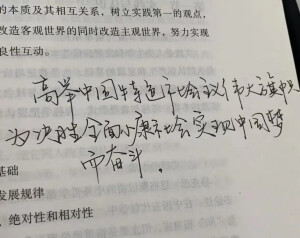 的本质及其相互关系，树立实践第一的观点，
改造客观世界的同时改造主观世界，努力实现
良性互动。
高举中国特色社会主义伟大旗帜
为决胜全面小康社会实现中国梦
而奋斗.
基础
发展规律
、绝对性和相对性